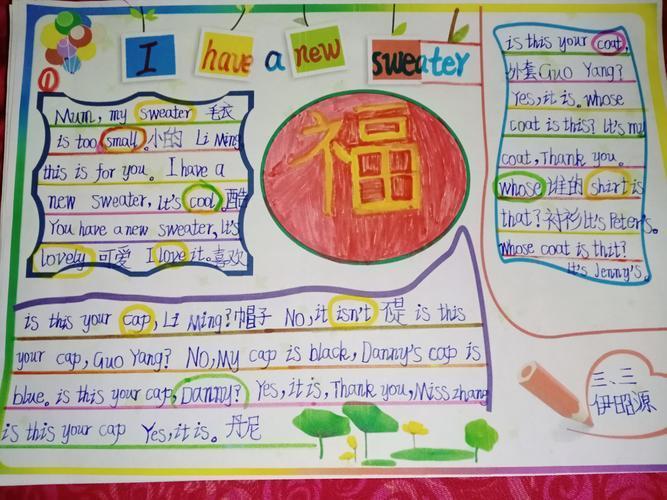 I have a new sweater
①
Mum, my sweater 毛衣
is too small 小的 Li Ming
this is for you. I have a
new sweater, it's cool 酷
You have a new sweater, It's
lovely 可爱 I love it.喜欢
福
is this your coat,
外套 Guo Yang?
Yes, it is. whose
coat is this? It's my
coat, Thank you.
whose 谁的 shirt is
that? 衬衫 It's Peter's.
Whose coat is thit?
It's Jenny's.
is this your cap, Li Ming? 帽子 No, it isn't 不是 is this
your cap, Guo Yang? No, My cap is black, Danny's cap is
blue. is this your cap, Danny? Yes, it is, Thank you, Miss zhang
is this your cap Yes, it is. 丹尼
三、三
伊昭源